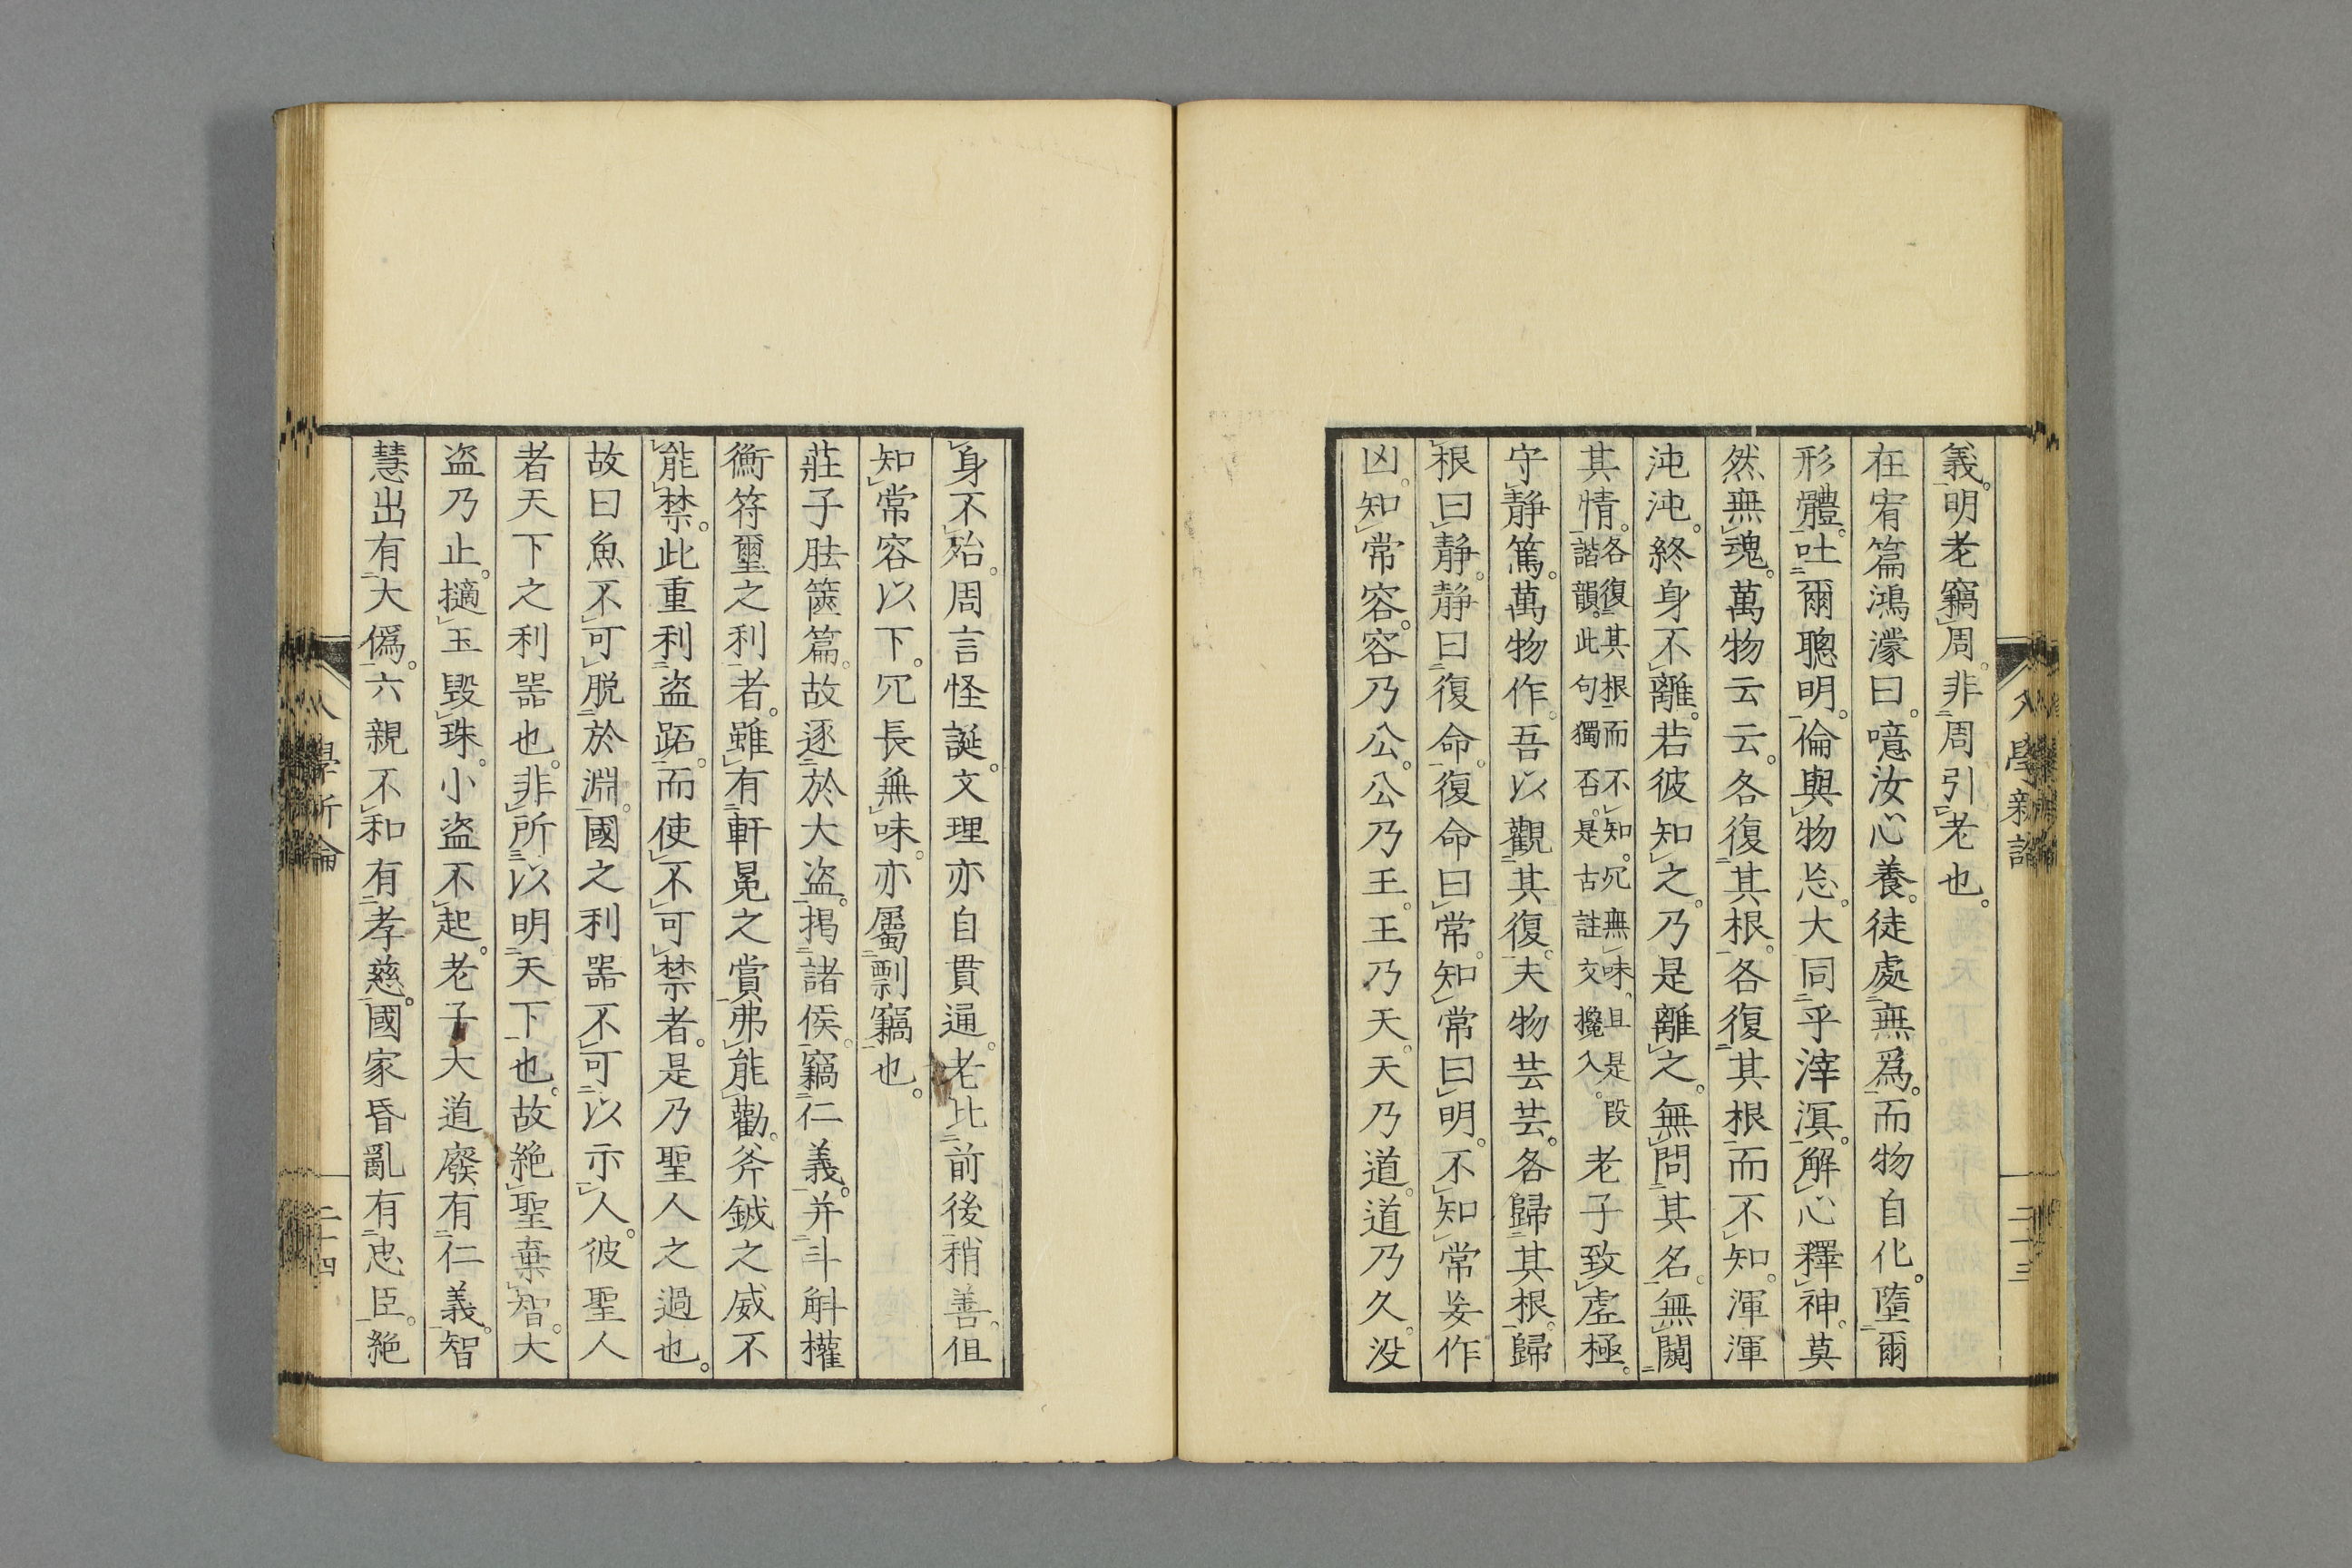 義。明老竊周。非周引老也。
在宥篇鴻濛曰。噫汝心養。徒處無爲。而物自化。墮爾
形體。吐爾聰明。倫與物忘。大同乎涬溟。解心釋神。莫
然無魂。萬物云云。各復其根。各復其根而不知。渾渾
沌沌。終身不離。若彼知之。乃是離之。無問其名。無闚
其情。各復其根而不知。冗無味、且是段諧韻。此句獨否。是古註交攙入。老子致虛極。
守靜篤。萬物作。吾以觀其復。夫物芸芸。各歸其根。歸
根曰靜。靜曰復命。復命曰常。知常曰明。不知常妄作
凶。知常容。容乃公。公乃王。王乃天。天乃道。道乃久。没
身不殆。周言怪誕。文理亦自貫通。老比前後稍善。但
知常容以下。冗長無味。亦屬剽竊也。
莊子胠篋篇。故逐於大盜。揭諸侯。竊仁義。并斗斛權
衡符璽之利者。雖有軒冕之賞弗能勸。斧鉞之威不
能禁。此重利盜跖。而使不可禁者。是乃聖人之過也。
故曰魚不可脱於淵。國之利噐不可以示人。彼聖人
者天下之利噐也。非所以明天下也。故絶聖棄智。大
盜乃止。擿玉毀珠。小盜不起。老子大道廢有仁義。智
慧出有大僞。六親不和有孝慈。國家昏亂有忠臣。絶
八學新論
二十三
八學新論
二十四